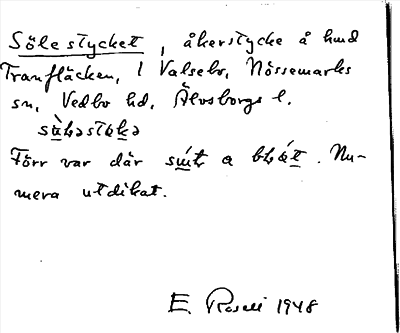 Sölestycket, åkerstycke å hmd
Tranfläcken, 1 Valsebo, Nössemarks
sn, Vedbo hd, Älvsborgs l.
Förr var där a . Nu-
mera utdikat.
E. Rosell 1948